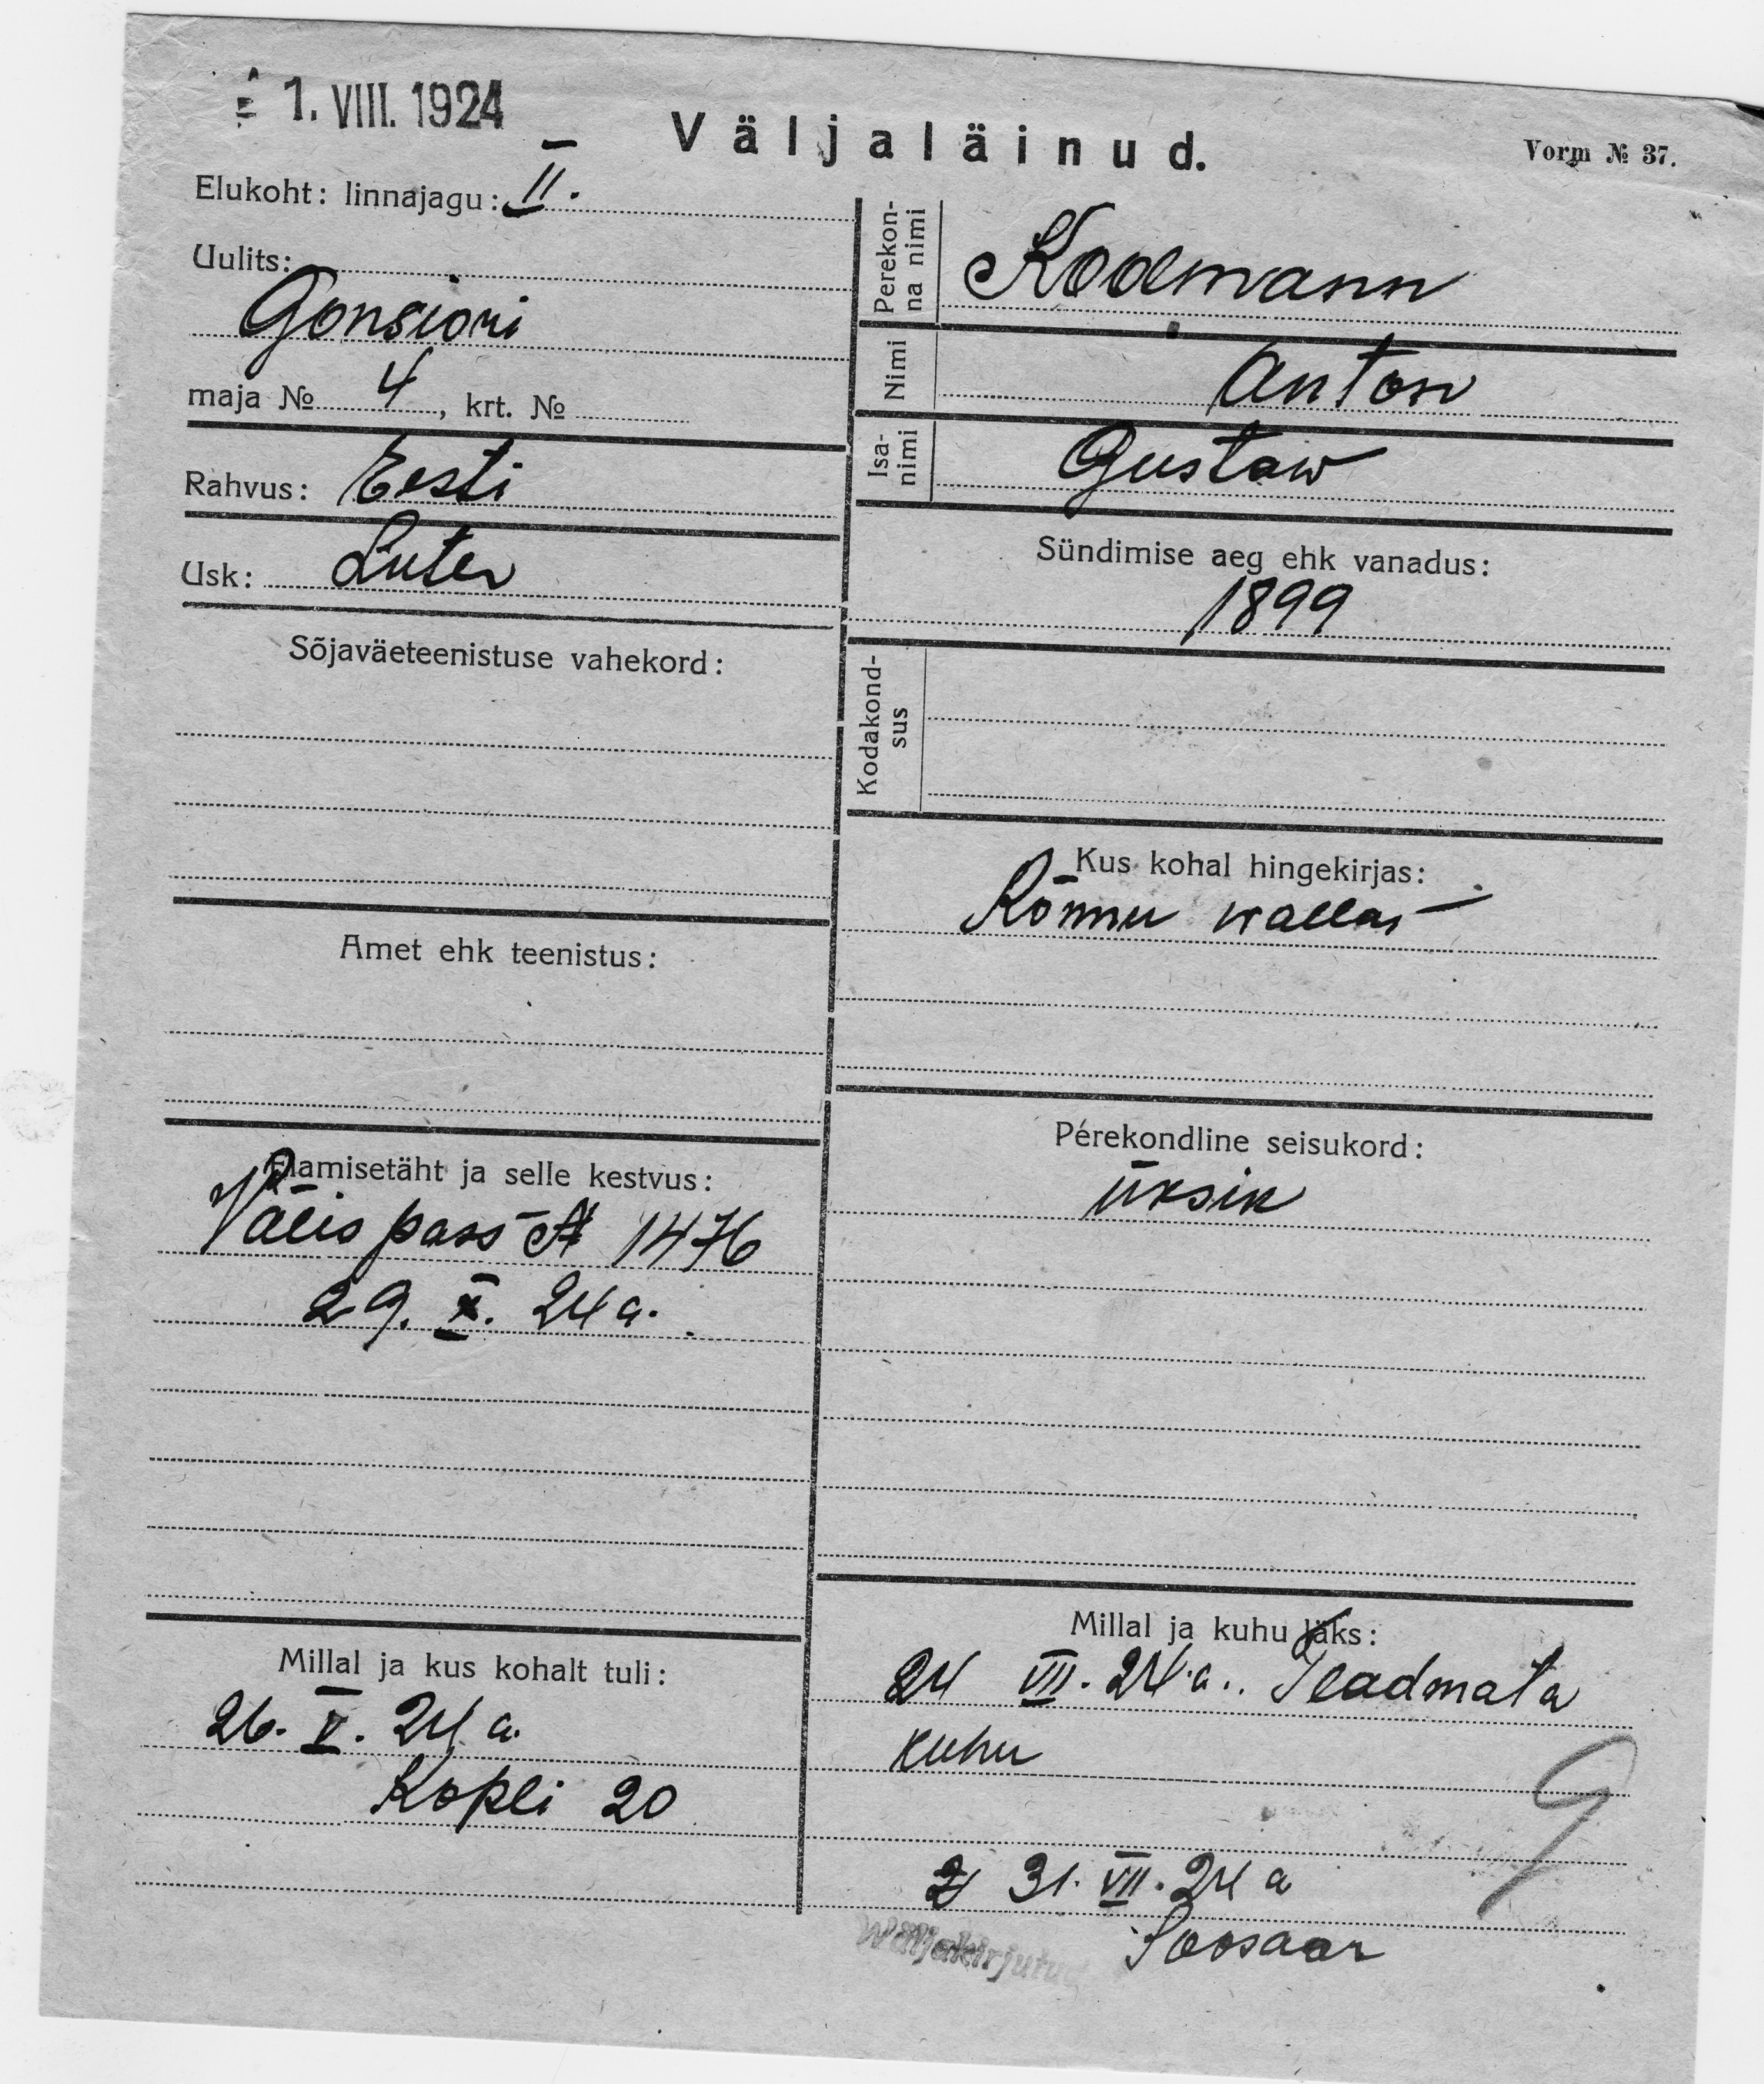 1. VIII. 1924
Väljaläinud.
Vorm № 37.
Elukoht: linnajagu: II.
Uulits:
Gonsiori
maja № 4, krt. №
Rahvus: Eesti
Usk: Luter
Sõjaväeteenistuse vahekord:
Amet ehk teenistus:
Elamisetäht ja selle kestvus:
Välis pass № 1476
29. X. 24 a.
Millal ja kus kohalt tuli:
26. V. 24 a.
Kopli 20
Perekonna nimi
Koolmann
Nimi
Anton
Isanimi
Gustaw
Sündimise aeg ehk vanadus:
1899
Kodakondsus
Kus kohal hingekirjas:
Kõnnu wallas
Perekondline seisukord:
üksik
Millal ja kuhu läks:
24 VII. 24 a. Teadmata
kuhu
31. VII. 24 a
Soosaar
Wäljakirjutud